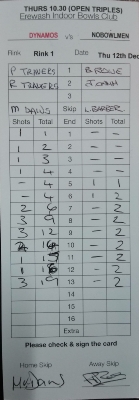 THURS 10.30 (OPEN TRIPLES)
Erewash Indoor Bowls Club
DYNAMOS v/s NOBOWLMEN
Rink Rink 1 Date Thu 12th Dec
P TRAVERS 1 B. ROWE
R TRAVERS 2 J. OANH
M DAWS Skip L. BARBER
Shots Total Ends Shots Total
1 1 1 - -
1 2 2 - -
1 3 3 - -
1 4 4 - -
- 4 5 1 1
- 4 6 1 2
2 6 7 - 2
3 9 8 - 2
3 12 9 - 2
2 14 10 - 2
1 15 11 - 2
1 16 12 - 2
3 19 13 - 2
14
15
16
Extra
Please check & sign the card
Home Skip Away Skip